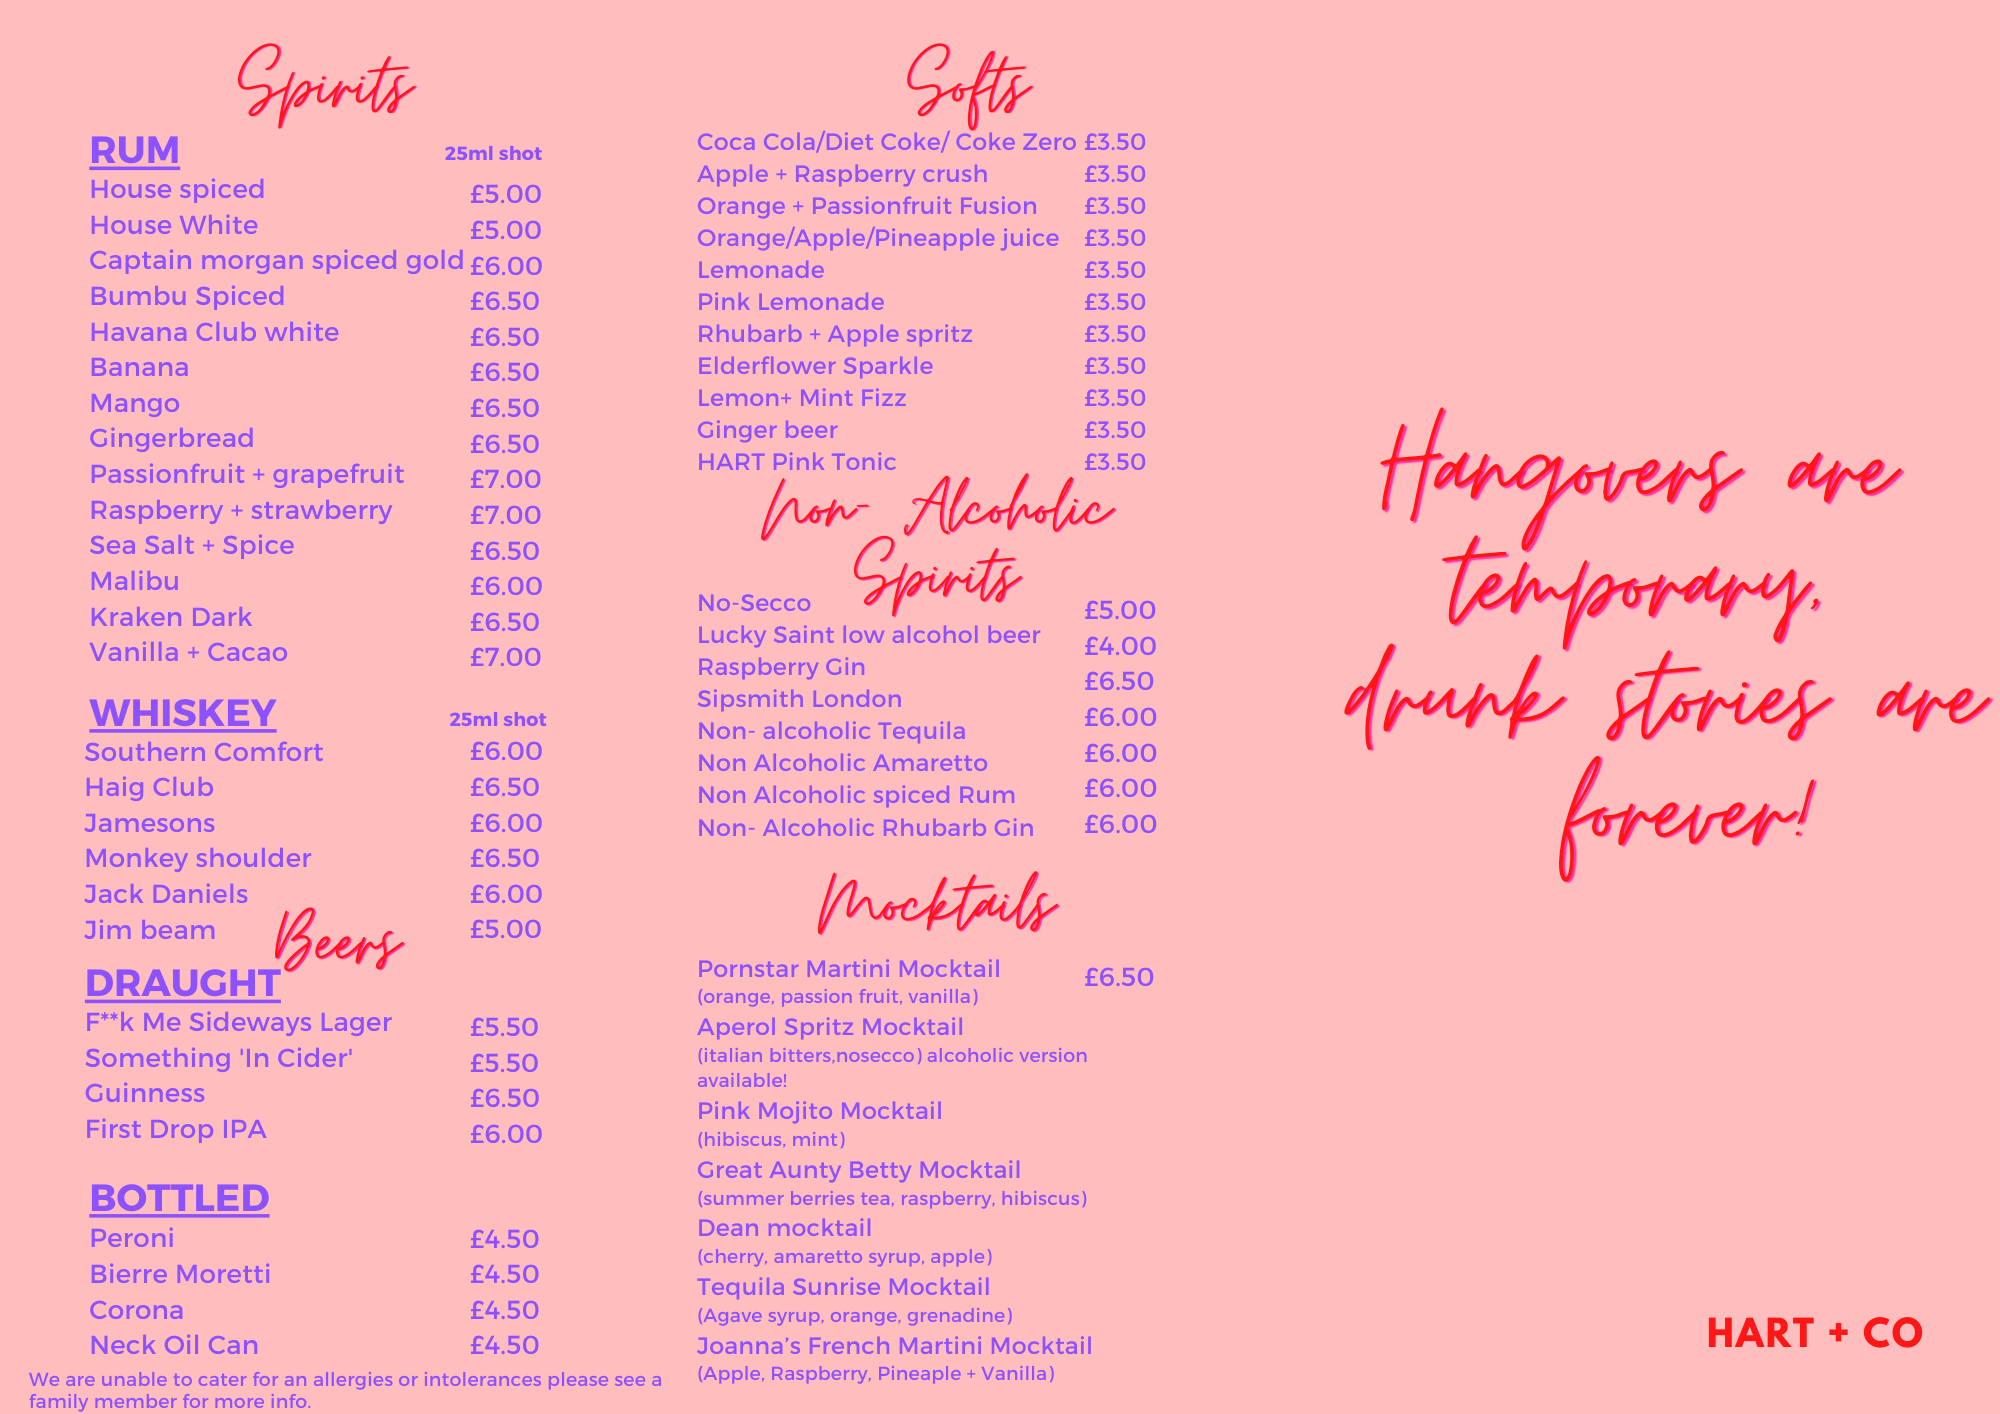 Spirits
RUM 25ml shot
House spiced £5.00
House White £5.00
Captain morgan spiced gold £6.00
Bumbu Spiced £6.50
Havana Club white £6.50
Banana £6.50
Mango £6.50
Gingerbread £6.50
Passionfruit + grapefruit £7.00
Raspberry + strawberry £7.00
Sea Salt + Spice £6.50
Malibu £6.00
Kraken Dark £6.50
Vanilla + Cacao £7.00
WHISKEY 25ml shot
Southern Comfort £6.00
Haig Club £6.50
Jamesons £6.00
Monkey shoulder £6.50
Jack Daniels £6.00
Jim beam £5.00
Beers
DRAUGHT
F**k Me Sideways Lager £5.50
Something 'In Cider' £5.50
Guinness £6.50
First Drop IPA £6.00
BOTTLED
Peroni £4.50
Bierre Moretti £4.50
Corona £4.50
Neck Oil Can £4.50
We are unable to cater for an allergies or intolerances please see a
family member for more info.
Softs
Coca Cola/Diet Coke/ Coke Zero £3.50
Apple + Raspberry crush £3.50
Orange + Passionfruit Fusion £3.50
Orange/Apple/Pineapple juice £3.50
Lemonade £3.50
Pink Lemonade £3.50
Rhubarb + Apple spritz £3.50
Elderflower Sparkle £3.50
Lemon+ Mint Fizz £3.50
Ginger beer £3.50
HART Pink Tonic £3.50
Non- Alcoholic
Spirits
No-Secco £5.00
Lucky Saint low alcohol beer £4.00
Raspberry Gin £6.50
Sipsmith London £6.00
Non- alcoholic Tequila £6.00
Non Alcoholic Amaretto £6.00
Non Alcoholic spiced Rum £6.00
Non- Alcoholic Rhubarb Gin
Mocktails
Pornstar Martini Mocktail £6.50
(orange, passion fruit, vanilla)
Aperol Spritz Mocktail
(italian bitters,nosecco) alcoholic version
available!
Pink Mojito Mocktail
(hibiscus, mint)
Great Aunty Betty Mocktail
(summer berries tea, raspberry, hibiscus)
Dean mocktail
(cherry, amaretto syrup, apple)
Tequila Sunrise Mocktail
(Agave syrup, orange, grenadine)
Joanna’s French Martini Mocktail
(Apple, Raspberry, Pineaple + Vanilla)
Hangovers are
temporary,
drunk stories are
forever!
HART + CO